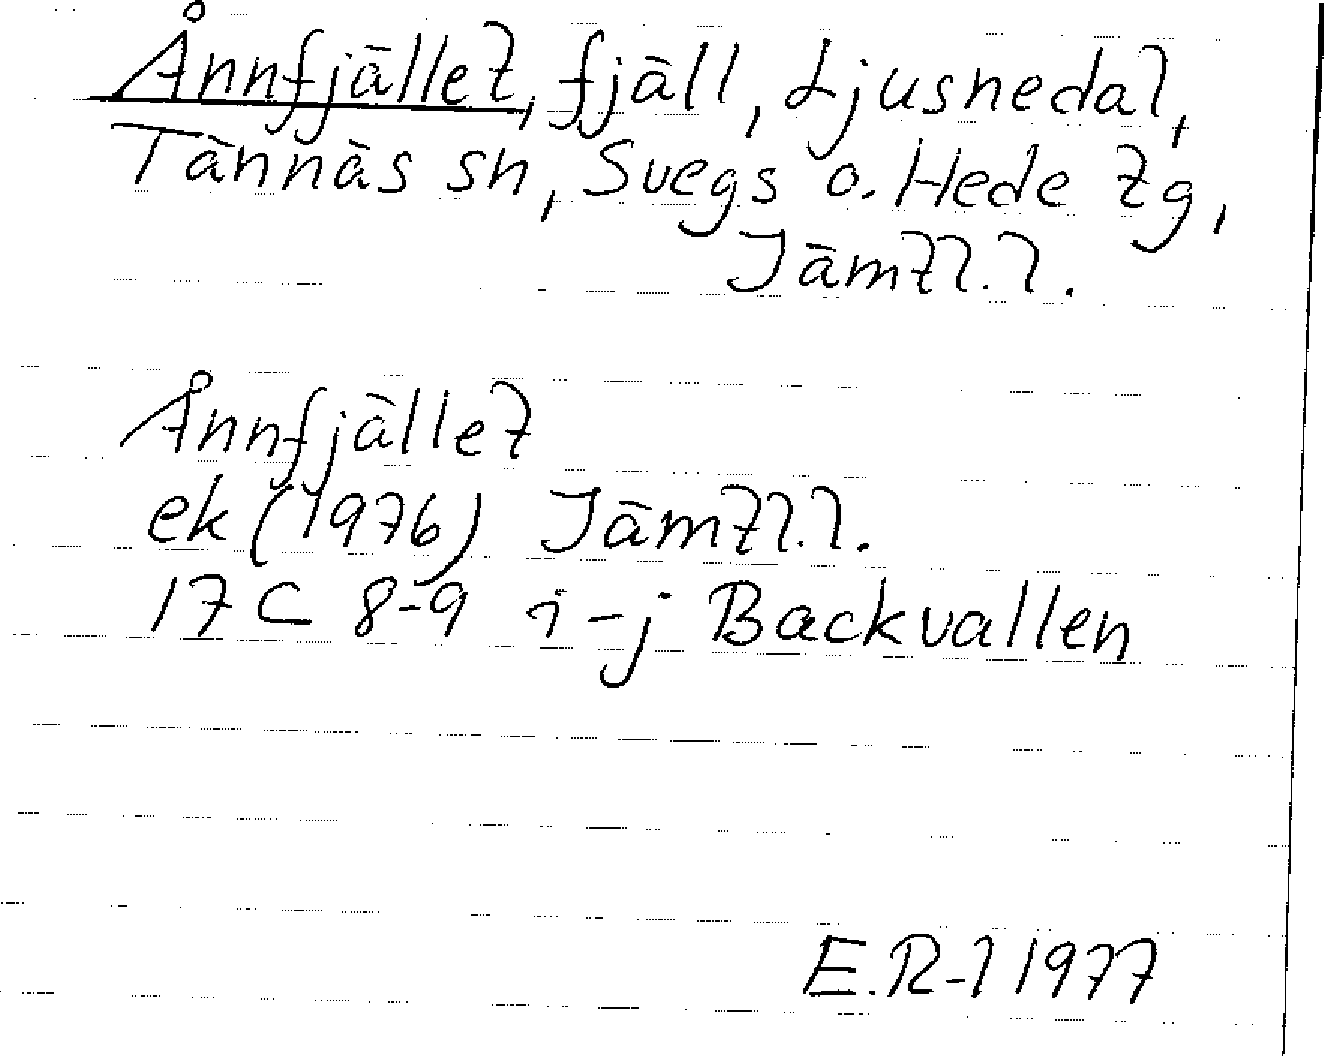 Ånnfjället, fjäll, Ljusnedal,
Tännäs sn, Svegs o. Hede tg,
Jämtl. l.
Ånnfjället
ek (1976) Jämtl. l.
17 C 8-9 i-j Backvallen
E.R-l 1977